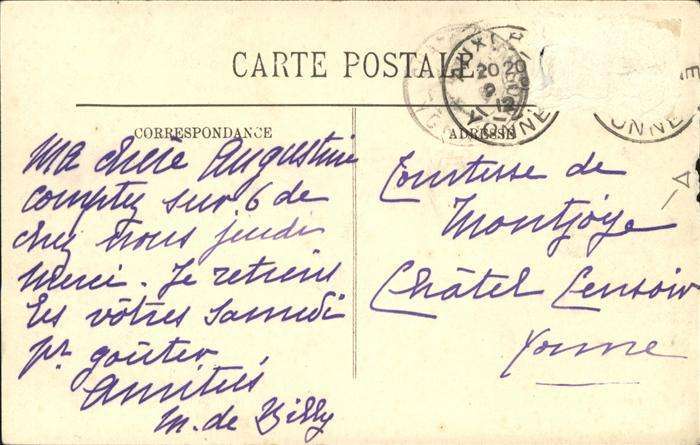 CARTE POSTALE
CORRESPONDANCE
Ma chère Augustine
comptez sur 6 de
chez nous jeudi
merci. Je retiens
les vôtres Samedi
pr goûter
Amitiés
M. de Billy
ADRESSE
Comtesse de
Montjoye
Châtel Censoir
Yonne
AUXERRE
20 20
9
12
YONNE
E
ONNE